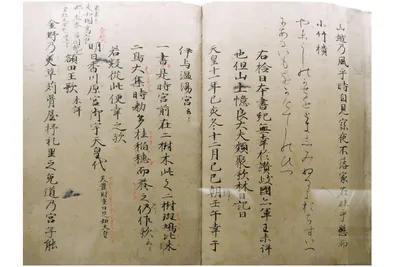 山越乃風乎時自見寐夜不落家在妹乎懸而
小竹櫃
やまこしのかせをときしみぬるよおちすいへ
なるいもをかけてしのひつ
右檢日本書紀無幸於讃岐國亦軍王未詳
也但山上憶良大夫類聚歌林曰記曰
天皇十一年己亥冬十二月己巳朔壬午幸于
伊与温湯宮云々
一書是時宮前在二樹木此之二樹斑鳩此米
二鳥大集時勅多挂稲穂而養之仍作歌云々
若疑從此便幸之歟
明日香川原宮御宇天皇代 天豊財重日足姫天皇
額田王歌 未詳
金野乃美草苅葺屋杼礼里之兎道乃宮子能